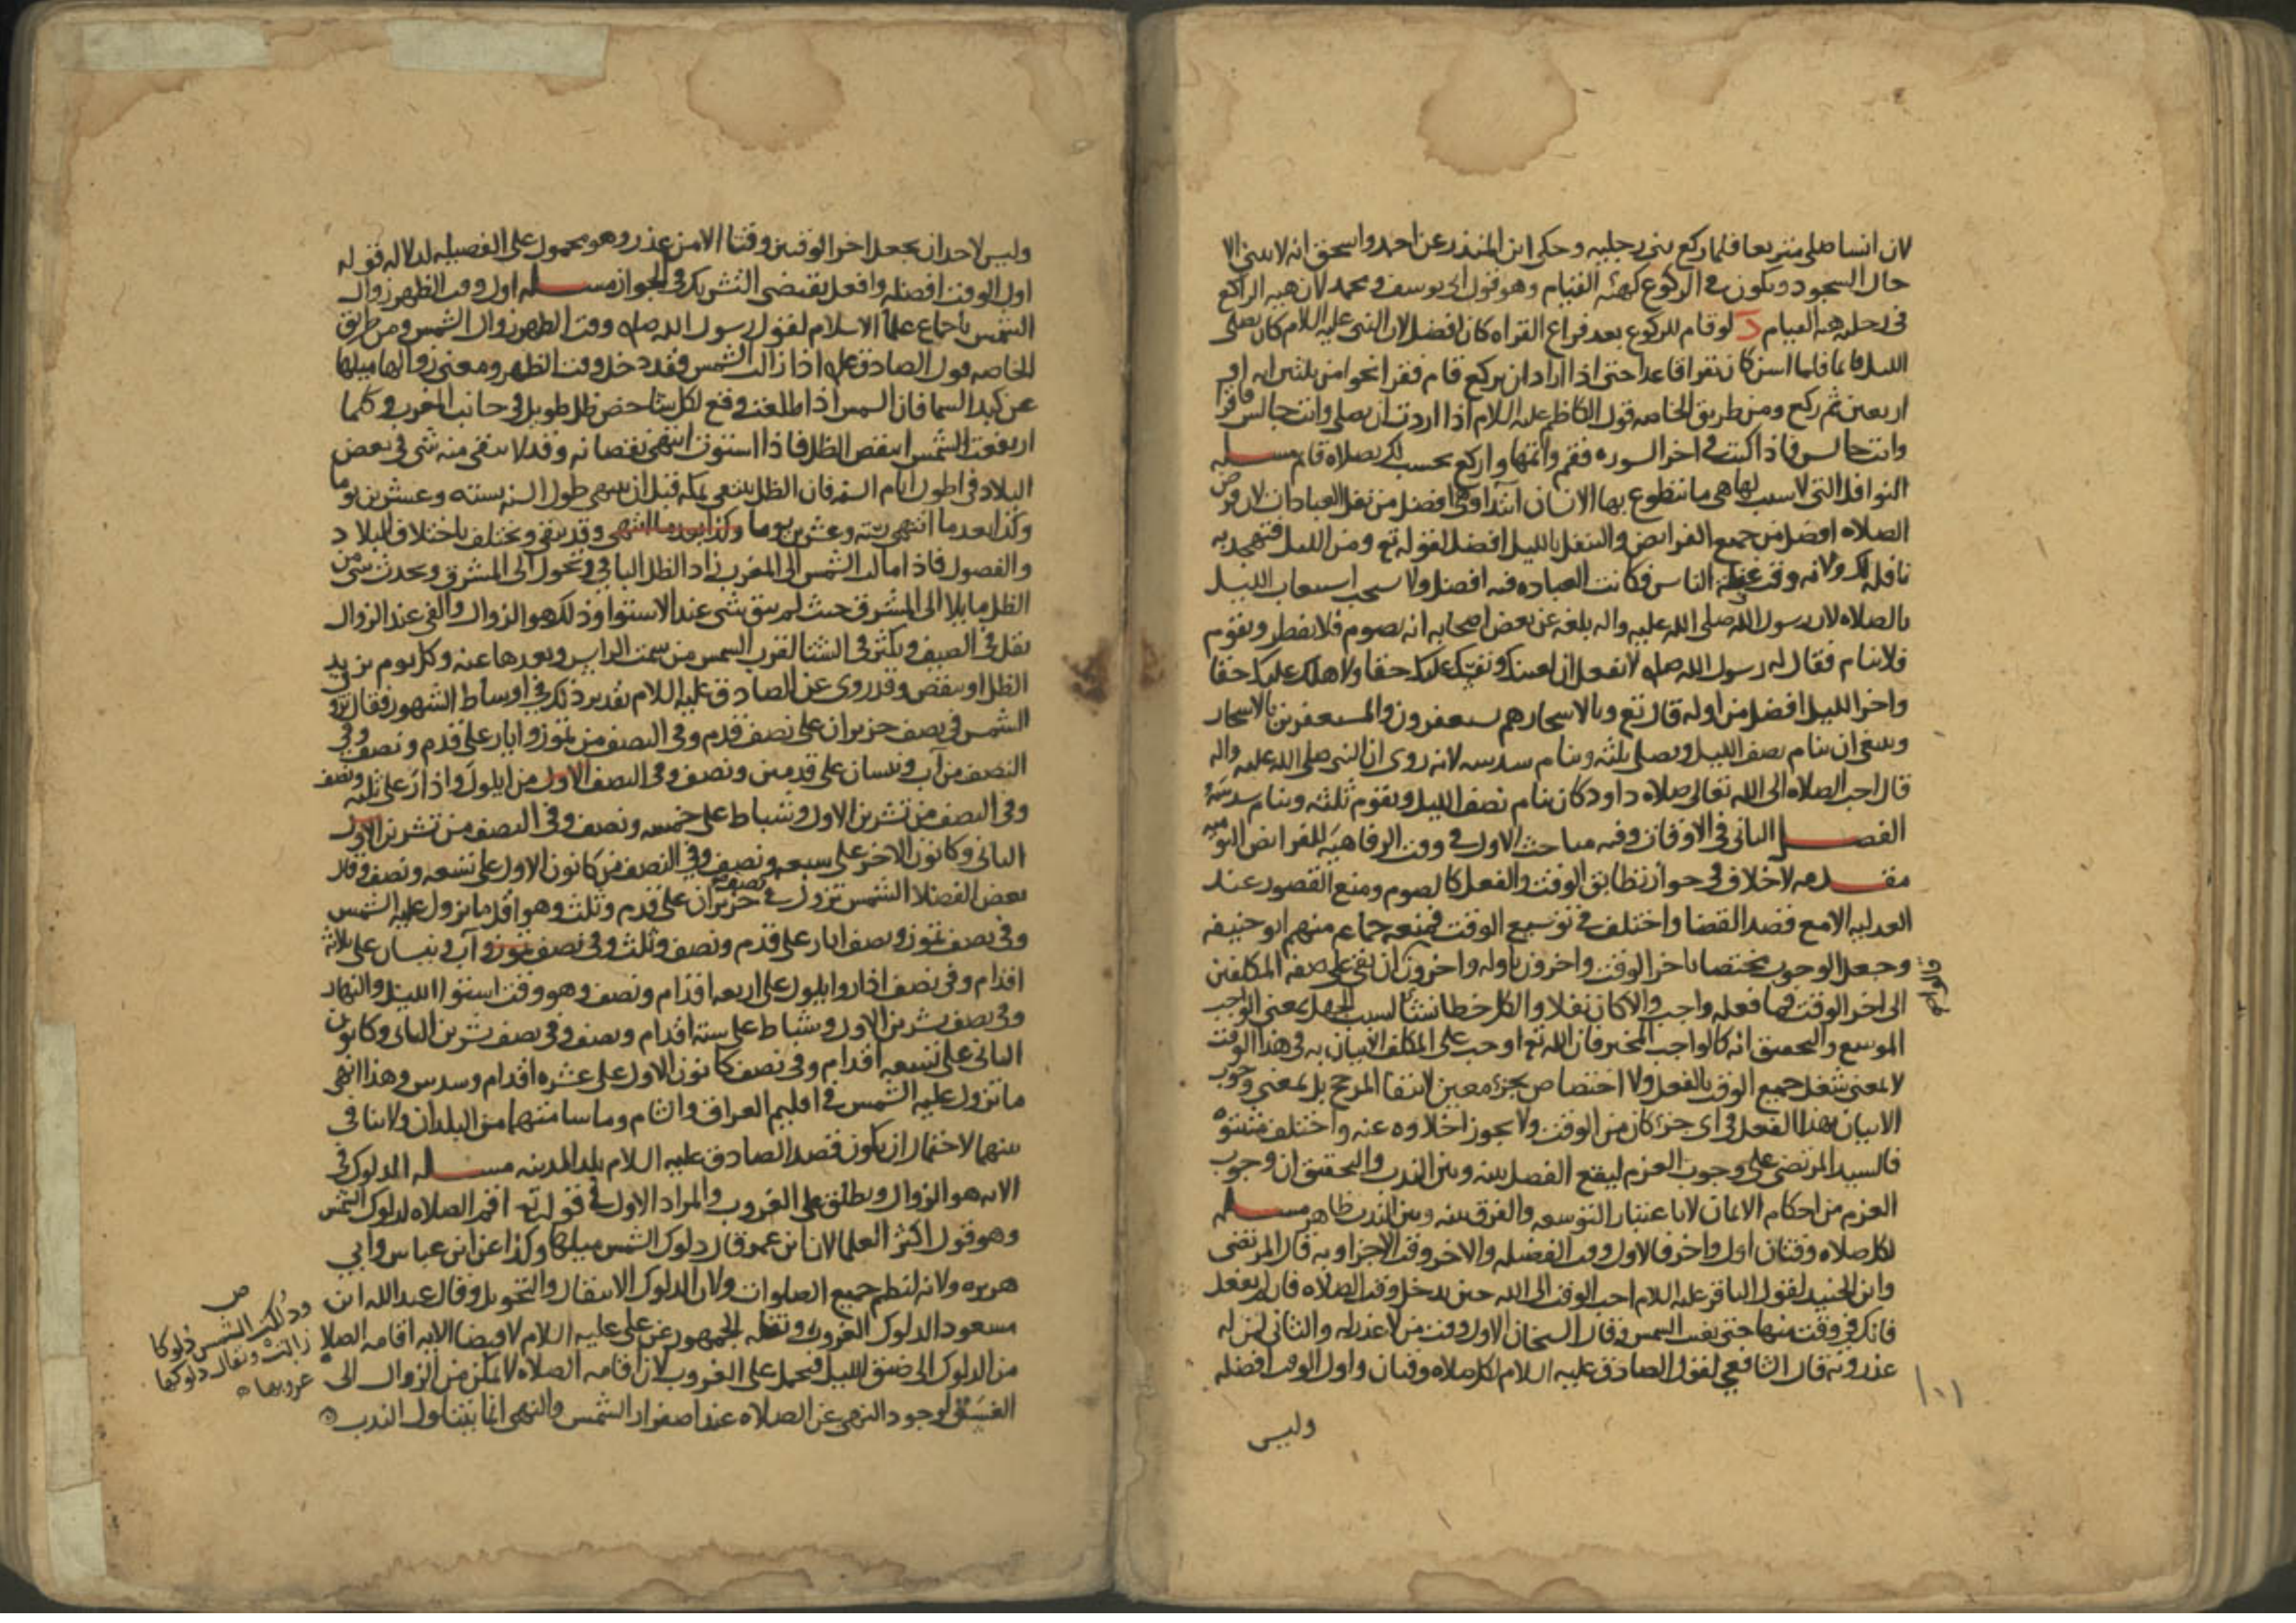 لان انسا صلى متربعا فلما ركع ثنى رجليه وحكى ابن المنذر عن احمد واسحق انه لا يثني الا
حال السجود ويكون في الركوع كهيئه القيام وهو قول ابي يوسف ومحمد لان هيه الراكع
في رجليه هيه القيام د لو قام للركوع بعد فراغ القراه كان افضل لان النبي عليه السلام كان يصلي
الليل قائما فلما اسن كان يقرا قاعدا حتى اذا اراد ان يركع قام فقرا نحوا من ثلثين ايه او
اربعين ثم ركع ومن طريق الخاصه قول الكاظم عليه السلام اذا اردت ان تصلي وانت جالس فاقرا
وانت جالس فاذا كنت في اخر السوره فقم واتمها واركع تحسب لك بصلاه قائم مسله
النوافل التي لا سبب لها هي ما يتطوع بها الانسان ابتدا وهي افضل من نفل العبادات لان فرض
الصلاه افضل من جميع الفرايض والتنفل بالليل افضل لقوله تع ومن الليل فتهجد به
نافله لك ولانه وقت غفلة الناس فكانت العباده فيه افضل ولا يستحب استيعاب الليل
بالصلاه لان رسول الله صلى الله عليه واله بلغه عن بعض اصحابه انه يصوم فلا يفطر ويقوم
فلا ينام فقال له رسول الله صله لا تفعل ان لعينك ونفسك عليك حقا ولاهلك عليك حقا
واخر الليل افضل من اوله قال تع وبالاسحار هم يستغفرون والمستغفرين بالاسحار
وينبغي ان ينام نصف الليل ويصلي ثلثه وينام سدسه لانه روى ان النبي صلى الله عليه واله
قال احب الصلاه الى الله تعالى صلاه داود كان ينام نصف الليل ويقوم ثلثه وينام سدسه
الفصل الثاني في الاوقات وفيه مباحث الاول في وقت الرفاهيه للفرايض اليوميه
مقدمه لا خلاف في جواز تطابق الوقت والفعل كالصوم ومنع القصور عند
العدليه الا مع قصد القضا واختلف في توسيع الوقت فمنعه جماعه منهم ابو حنيفه
وجعل الوجوب مختصا باخر الوقت واخرون باوله واخرون ان بقي على صفه المكلفين
الى اخر الوقت فما فعله واجب والا كان نفلا والكل خطا نشا لسبب الجهل بمعنى الواجب
الموسع والتحقيق انه كالواجب المخير فان الله تع اوجب على المكلف الاتيان به في هذا الوقت
لا بمعنى شغل جميع الوقت بالفعل ولا اختصاص بجزء معين لانتفا المرجح بل بمعنى وجوب
الاتيان بهذا الفعل في اي جزء كان من الوقت ولا يجوز اخلاوه عنه واختلف مثبتوه
فالسيد المرتضى على وجوب العزم ليقع الفصل بينه وبين الندب والتحقيق ان وجوب
العزم من احكام الايمان لا باعتبار التوسعه والفرق بينه وبين الندب ظاهر مسله
لكل صلاه وقتان اول واخر فالاول وقت الفضيله والاخر وقت الاجزاء وبه قال المرتضى
وابن الجنيد لقول الباقر عليه السلام احب الوقت الى الله حين يدخل وقت الصلاه فان لم تفعل
فانك في وقت منها حتى تغيب الشمس وقال الشيخان الاول وقت من لا عذر له والثاني لمن له
عذر وبه قال الشافعي لقول الصادق عليه السلام لكل صلاه وقتان واول الوقت افضله
وليس
١٠١
وليس لاحد ان يجعل اخر الوقتين وقتا الا من عذر وهو محمول على الفضيله لدلاله قوله
اول الوقت افضله وافعل يقتضي التشريك في الجواز مسله اول وقت الظهر زوال
الشمس باجماع علما الاسلام لقول رسول الله صله وقت الظهر زوال الشمس ومن طريق
الخاصه قول الصادق عله اذا زالت الشمس فقد دخل وقت الظهر ومعنى زوالها ميلها
عن كبد السما فان الشمس اذا طلعت وقع لكل شاخص ظل طويل في جانب المغرب وكلما
ارتفعت الشمس انتقص الظل فاذا استوت انتهى نقصانه وقد لا يبقى منه شي في بعض
البلاد في اطول ايام السنه فان الظل ينتفي بمكه قبل ان ينتهي طول السنه بسته وعشرين يوما
وكذا بعد ما انتهى بسته وعشرين يوما وكذا بعد ما انتهى وقد يبقى ويختلف باختلاف البلاد
والفصول فاذا مالت الشمس الى المغرب زاد الظل الباقي وتحول الى المشرق ويحدث شي من
الظل مايلا الى المشرق حيث لم يبق شي عند الاستوا وذلك هو الزوال والفي عند الزوال
يقل في الصيف ويكثر في الشتا لقرب الشمس من سمت الراس وبعدها عنه وكل يوم يزيد
الظل او ينقص وقد روى عن الصادق عليه السلام تقدير ذلك في اوساط الشهور فقال تزول
الشمس في نصف حزيران على نصف قدم وفي النصف من تموز وايار على قدم ونصف وفي
النصف من آب ونيسان على قدمين ونصف وفي النصف الاول من ايلول واذار على ثلثه ونصف
وفي النصف من تشرين الاول وشباط على خمسه ونصف وفي النصف من تشرين الاول
الثاني وكانون الاخر على سبعه ونصف وفي النصف من كانون الاول على تسعه ونصف وقال
بعض الفضلا الشمس تزول في نصف حزيران على قدم وثلث وهو اقل ما تزول عليه الشمس
وفي نصف تموز ونصف ايار على قدم ونصف وثلث وفي نصف تموز وآب ونيسان على ثلاثة
اقدام وفي نصف اذار وايلول على اربعه اقدام ونصف وهو وقت استوا الليل والنهار
وفي نصف تشرين الاول وشباط على سته اقدام ونصف وفي نصف تشرين الثاني وكانون
الثاني على تسعه اقدام وفي نصف كانون الاول على عشره اقدام وسدس وهذا انهى
ما تزول عليه الشمس في اقليم العراق والشام وما سامتهما من البلدان ولا تنافي
بينهما لاحتمال ان يكون قصد الصادق عليه السلام بلد المدينه مسله الدلوك في
الايه هو الزوال ويطلق على الغروب والمراد الاول في قوله تع اقم الصلاه لدلوك الشمس
وهو قول اكثر العلما لان ابن عمر قال دلوك الشمس ميلها وكذا عن ابن عباس وابي
هريره ولانه لنظم جميع الصلوات ولان الدلوك الانتقال والتحويل وقال عبد الله ابن
مسعود الدلوك الغروب ونقله الجمهور عن علي عليه السلام لاقتضا الايه اقامه الصلاه
من الدلوك الى غسق الليل فيحمل على الغروب لان اقامه الصلاه لا يمكن من الزوال الى
الغسق لوجود النهي عن الصلاه عند اصفرار الشمس والنهي انما يتناول الندب
ص
ودلكت الشمس دلوكا
زالت ويقال دلوكها
غروبها